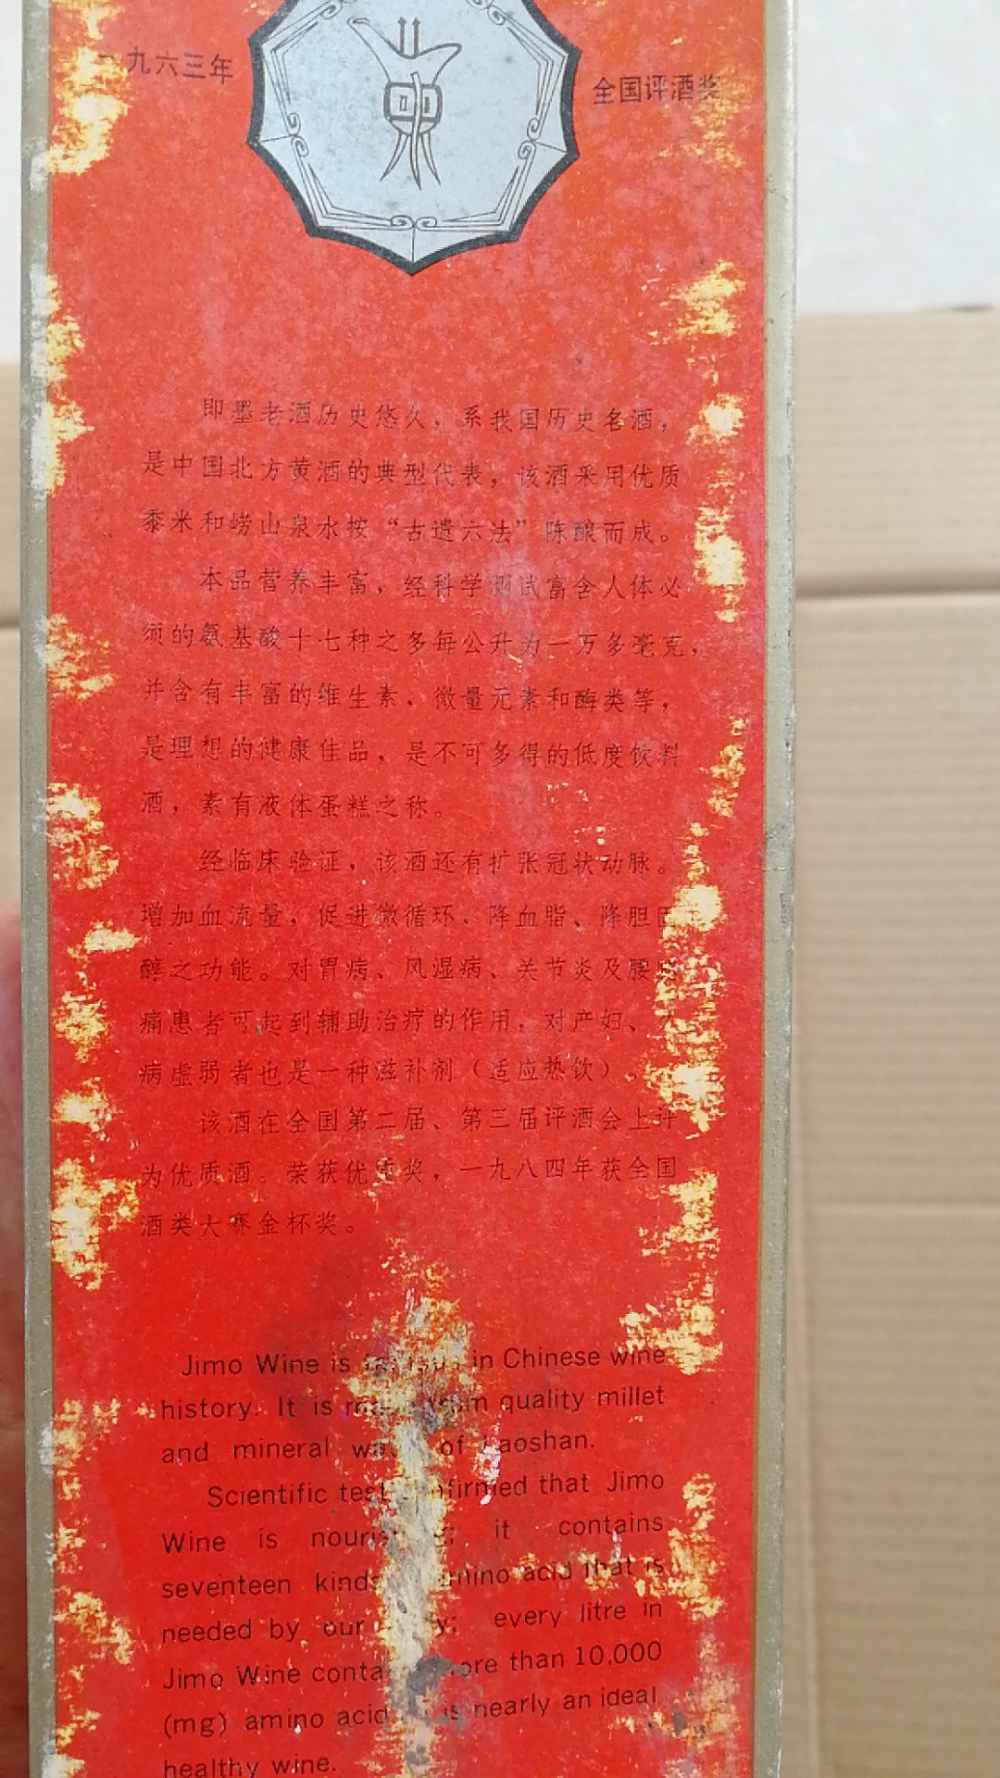 一九六三年
全国评酒奖
即墨老酒历史悠久，系我国历史名酒，
是中国北方黄酒的典型代表，该酒采用优质
黍米和崂山泉水按“古遗六法”陈酿而成。
本品营养丰富，经科学测试富含人体必
须的氨基酸十七种之多每公升为一万多毫克，
并含有丰富的维生素、微量元素和酶类等，
是理想的健康佳品，是不可多得的低度饮料
酒，素有液体蛋糕之称。
经临床验证，该酒还有扩张冠状动脉。
增加血流量，促进微循环、降血脂、降胆固
醇之功能。对胃病、风湿病、关节炎及腰
痛患者可起到辅助治疗的作用，对产妇、
病虚弱者也是一种滋补剂（适应热饮）。
该酒在全国第二届、第三届评酒会上评
为优质酒。荣获优质奖，一九八四年获全国
酒类大赛金杯奖。
Jimo Wine is in Chinese wine
history. It is quality millet
and mineral of Laoshan.
Scientific test that Jimo
Wine is it contains
seventeen kinds amino acid that is
needed by our every litre in
Jimo Wine more than 10,000
(mg) amino acid is nearly an ideal
healthy wine.